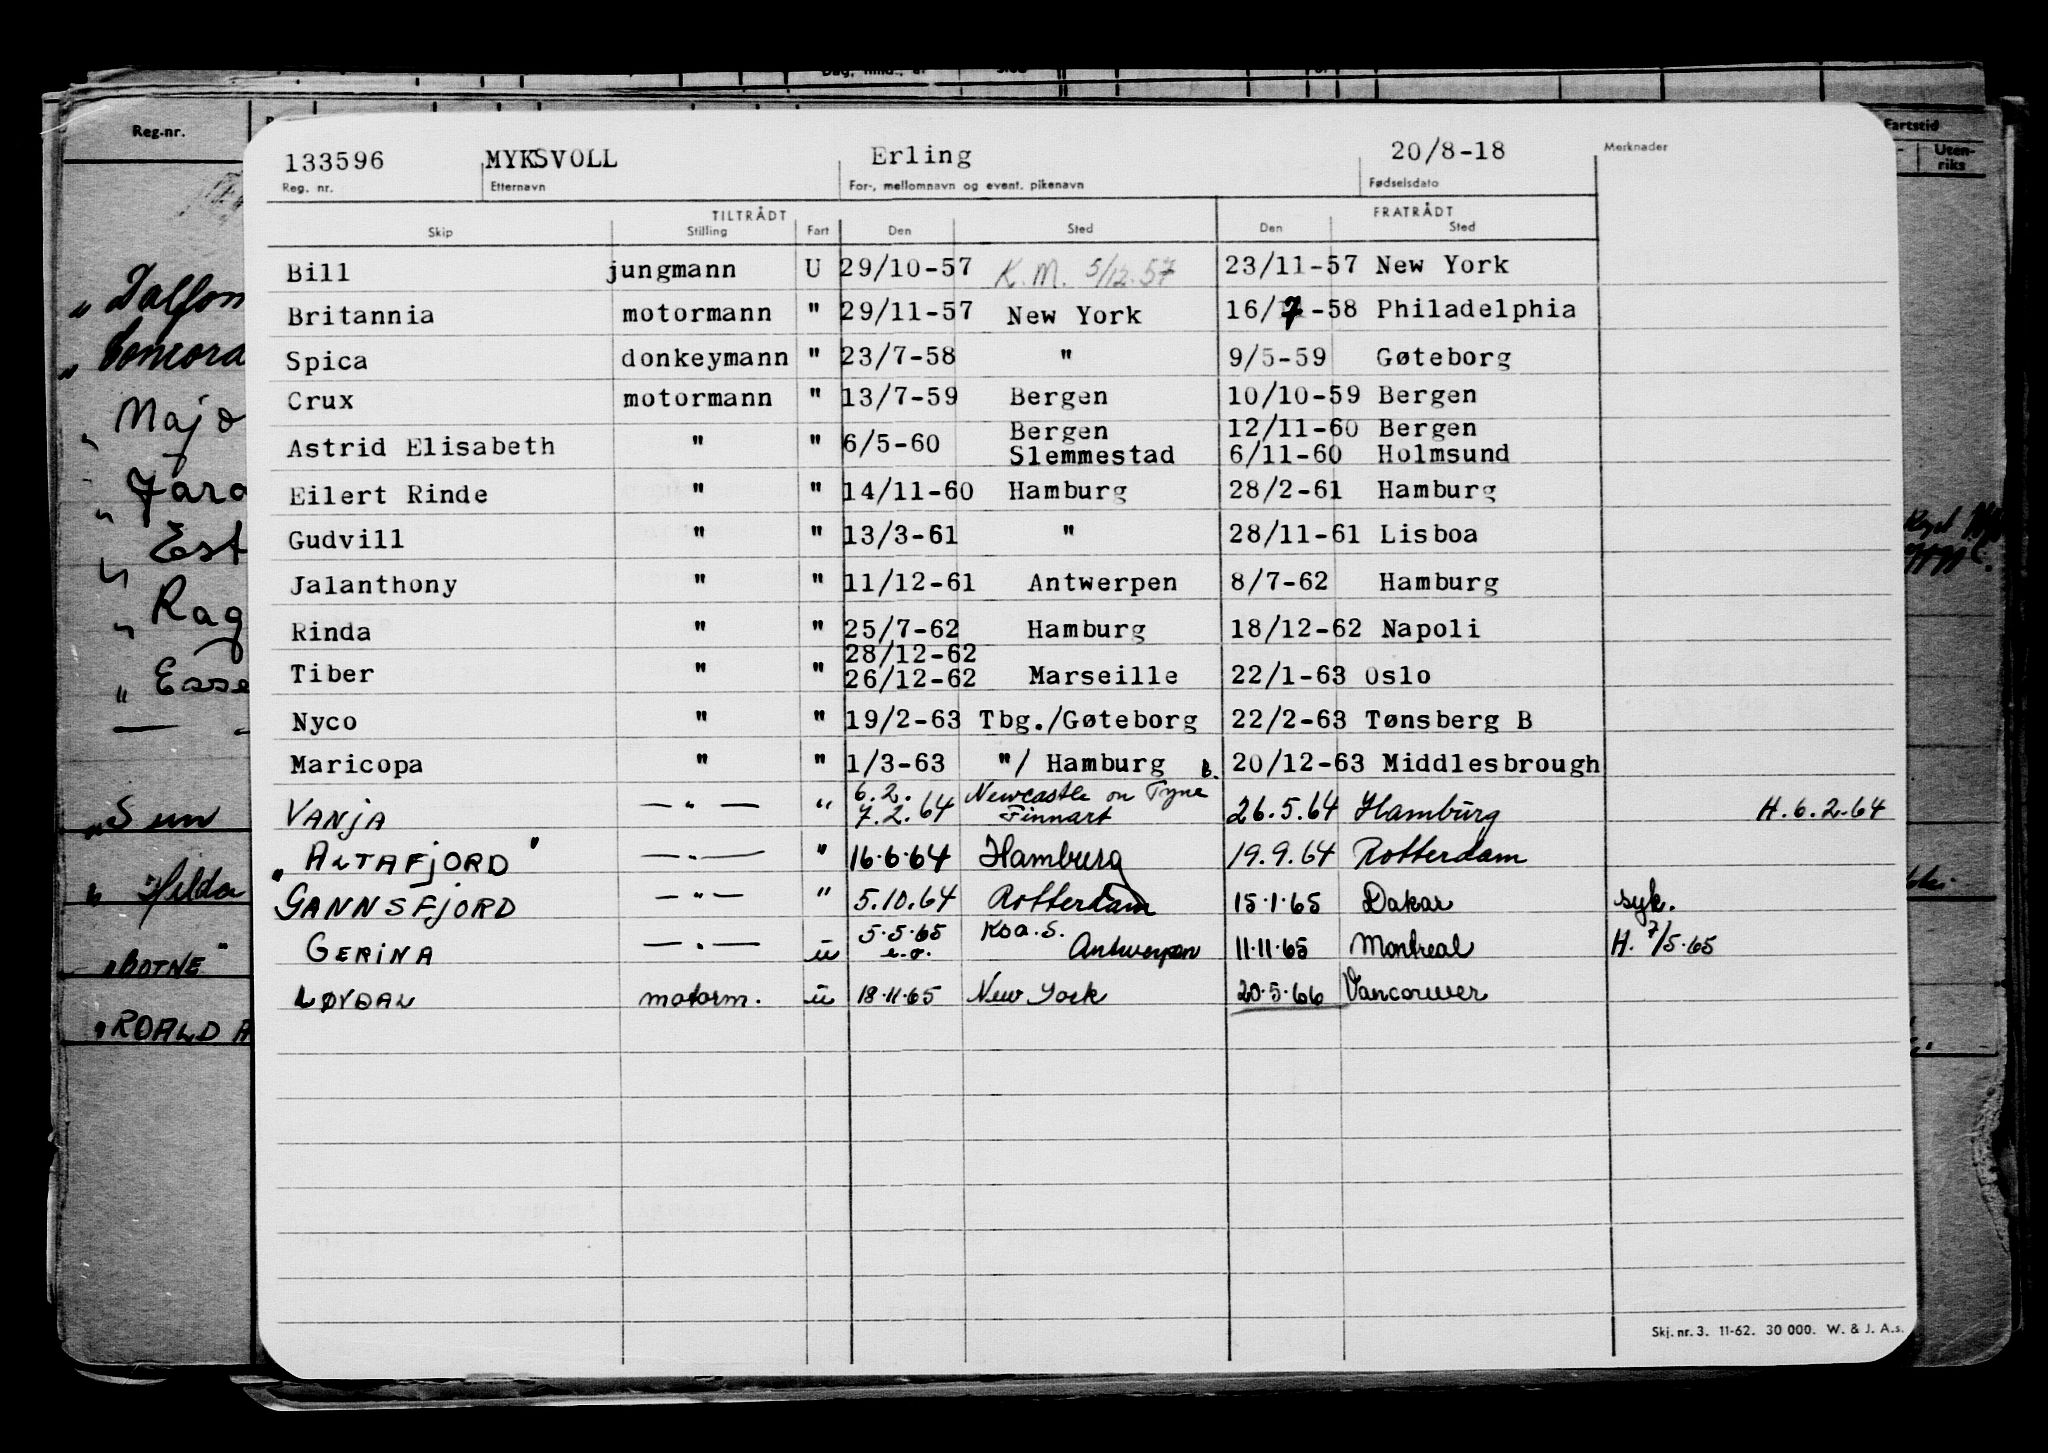 Reg-nr.
Fartstid
Uten-
riks
133596 MYKSVOLL Erling 20/8-18 Merknader
Reg. nr. Etternavn For-, mellomnavn og event. pikenavn Fødselsdato
TILTRÅDT FRATRÅDT
Skip Stilling Fart Den Sted Den Sted
Bill jungmann U 29/10-57 K.M. 5/12.57 23/11-57 New York
Britannia motormann " 29/11-57 New York 16/7-58 Philadelphia
Spica donkeymann " 23/7-58 " 9/5-59 Gøteborg
Crux motormann " 13/7-59 Bergen 10/10-59 Bergen
Bergen 12/11-60 Bergen
Astrid Elisabeth " " 6/5-60 Slemmestad 6/11-60 Holmsund
Eilert Rinde " " 14/11-60 Hamburg 28/2-61 Hamburg
Gudvill " " 13/3-61 " 28/11-61 Lisboa
Jalanthony " " 11/12-61 Antwerpen 8/7-62 Hamburg
Rinda " " 25/7-62 Hamburg 18/12-62 Napoli
28/12-62
Tiber " " 26/12-62 Marseille 22/1-63 Oslo
Nyco " " 19/2-63 Tbg./Gøteborg 22/2-63 Tønsberg B
Maricopa " " 1/3-63 "/ Hamburg B. 20/12-63 Middlesbrough
6.2. Newcastle on Tyne
VANJA — " — " 7.2.64 Finnart 26.5.64 Hamburg H. 6.2.64
"ALTAFJORD" — " — " 16.6.64 Hamburg 19.9.64 Rotterdam
GANNSFJORD — " — " 5.10.64 Rotterdam 15.1.65 Dakar syk.
5.5.65 Koa.S.
GERINA — " — u e.o. Antwerpen 11.11.65 Montreal H. 7/5.65
LØVDAL motorm. u 18.11.65 New York 20.5.66 Vancouver
Skj. nr. 3. 11-62. 30 000. W. & J. A.s.
" Majo
" Est
" Rag
" Esse
" Sun
" Hilda
"BOTNE"
"ROALD A